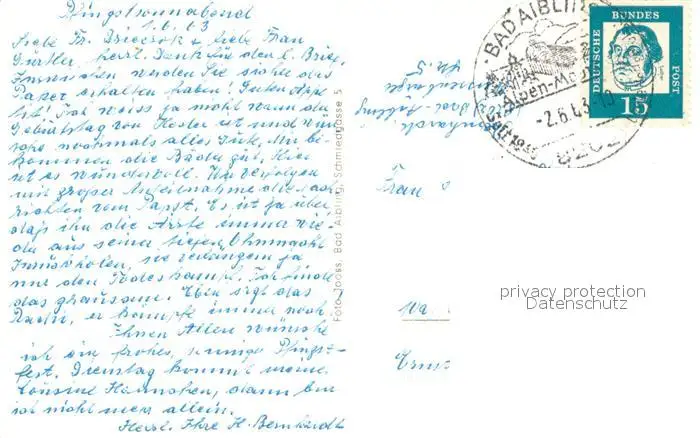 Pfingstsonnabend
1.6.63
Liebe Fr. Drieczok & liebe Frau
Günther, herzl. Dank für den l. Brief.
Inzwischen werden Sie wohl das
Paket erhalten haben! Guten Appe-
tit! Ich weiss ja nicht wann der
Geburtstag von Heide ist und wün-
sche nochmals alles Gute. Mir be-
kommen die Bäder gut. Hier
ist es wundervoll. Wir verfolgen
mit großer Anteilnahme die Nach-
richten vom Papst. Es ist ja übel,
daß ihn die Ärzte immer wie-
der aus seiner tiefen Ohnmacht
zurückholen, sie verlängern ja
nur den Todeskampf. Ich finde
das grausam. Eben sagt das
Radio, er kämpfe immer noch
Ihnen Allen wünsche
ich ein frohes, sonniges Pfingst-
fest. Dienstag kommt meine
Cousine Hannchen, dann bin
ich nicht mehr allein.
Herzl. Ihre H. Bernhardt
Foto Jooss, Bad Aibling, Schmiedgasse 5
BAD AIBLING
2.6.63
seit 1845
8202
DEUTSCHE BUNDES POST
15
Bernhardt
Bad-Aibling
Frau
Wa
Ernst
privacy protection
Datenschutz